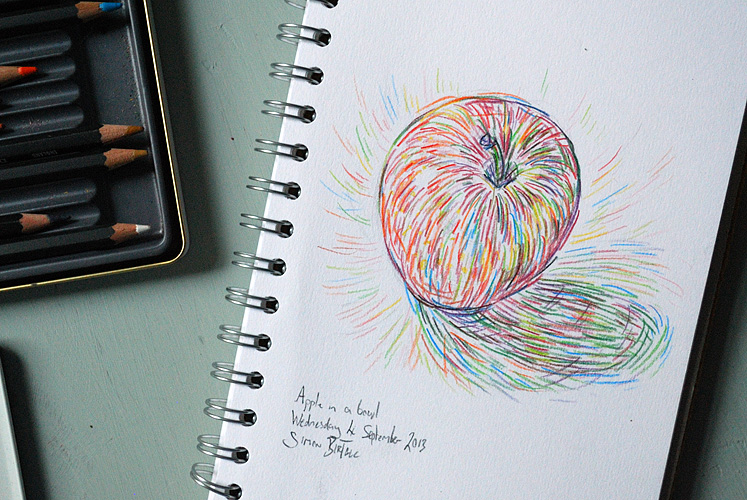 Apple in a bowl
Wednesday 4 September 2013
Simon